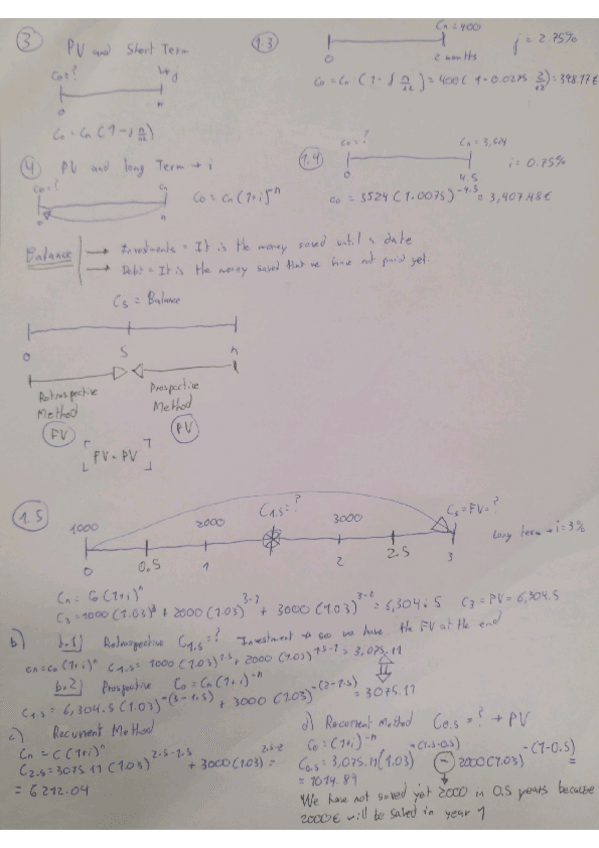 3 PV and Short Term
C0=?
0 n
C0 = Cn (1-d n/12)
1.3 Cn = 400
0 2 months
j = 2.75%
C0 = Cn (1-d n/12) = 400 (1-0.0275 2/12) = 398.17€
4 PV and long Term → i
C0=? Cn
0 n
C0 = Cn (1+i)^-n
1.4 C0=? Cn = 3,524
0 4.5
i = 0.75%
C0 = 3524 (1.0075)^-4.5 = 3,407.48€
Balance
→ Investments = It is the money saved until s date
→ Debt = It is the money saved that we have not paid yet.
Cs = Balance
0 s n
Retrospective Method
Prospective Method
FV PV
[FV = PV]
1.5 1000 2000 C1.5=? 3000 C3=FV=?
0 0.5 1 2 2.5 3
long term → i=3%
Cn = C0 (1+i)^n
C3 = 1000 (1.03)^3 + 2000 (1.03)^3-1 + 3000 (1.03)^3-2 = 6,304.5 C3 = PV = 6,304.5
b) b.1) Retrospective C1.5=? Investment → so we have the FV at the end
Cn = C0 (1+i)^n C1.5 = 1000 (1.03)^1.5 + 2000 (1.03)^1.5-1 = 3,075.11
b.2) Prospective C0 = Cn (1+i)^-n
C1.5 = 6,304.5 (1.03)^-(3-1.5) + 3000 (1.03)^-(2-1.5) = 3075.11
c) Recurrent Method
Cn = C (1+i)^n
C2.5 = 3075.11 (1.03)^2.5-1.5 + 3000 (1.03)^2.5-2 =
= 6212.04
d) Recurrent Method C0.5 = ? → PV
C0 = (1+i)^-n
C0.5 = 3,075.11 (1.03)^-(1.5-0.5) - 2000 (1.03)^-(1-0.5) =
= 1014.89
We have not saved yet 2000 in 0.5 years because
2000€ will be saved in year 1